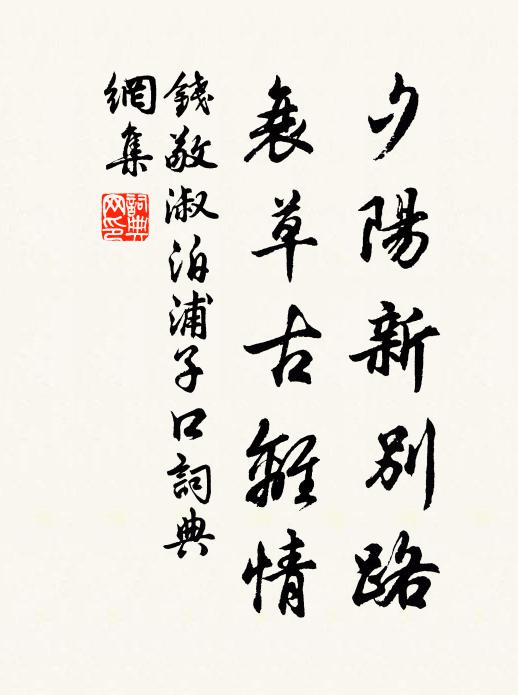 夕陽新別路
衰草古離情
錢敬淑泊浦子口詞典
網集
詞典網印